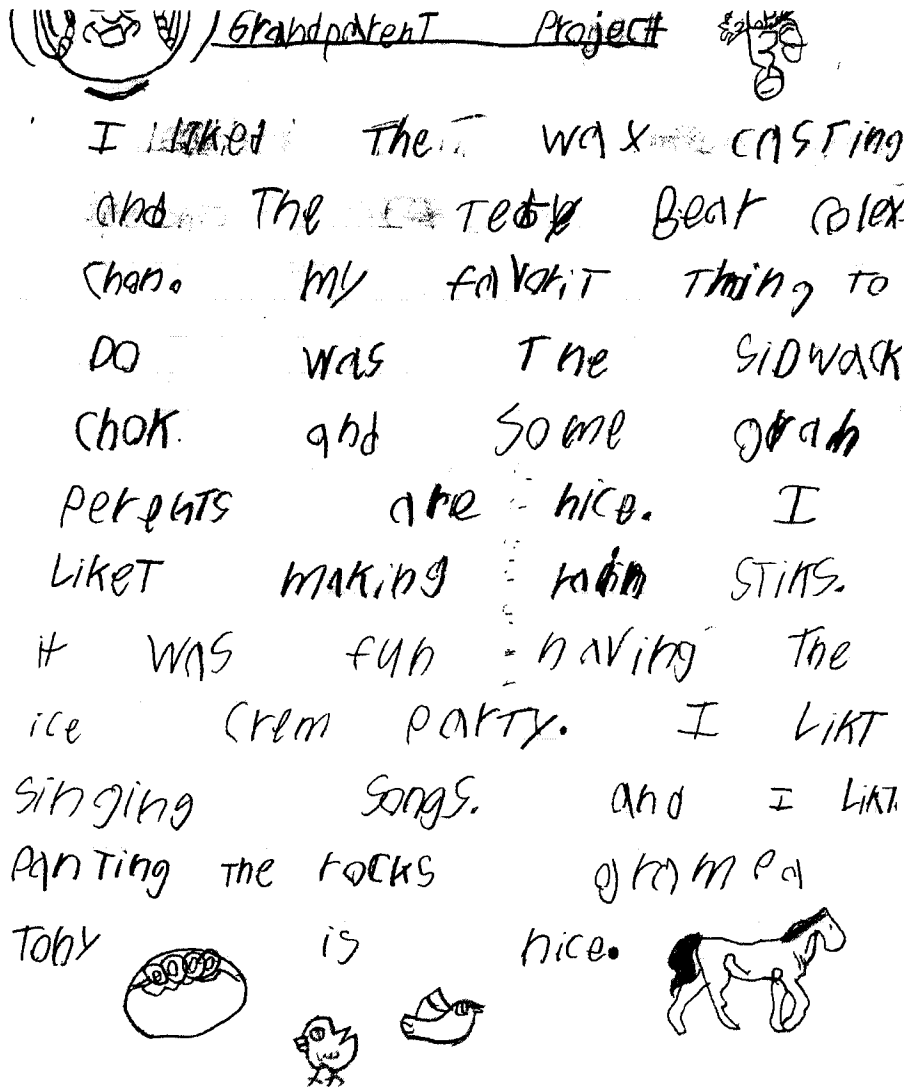 GrandparenT Project
I liked The wax casTing
and The Tedy Bear colex
Chan. my favoriT Thing To
DO was The SiDwack
Chok and some gran
perenTs are nice. I
LikeT making rain STiks.
it was fun having The
ice Crem parTy. I LikT
singing songs. and I LikT
panTing The rocks grampa
Toby is nice.